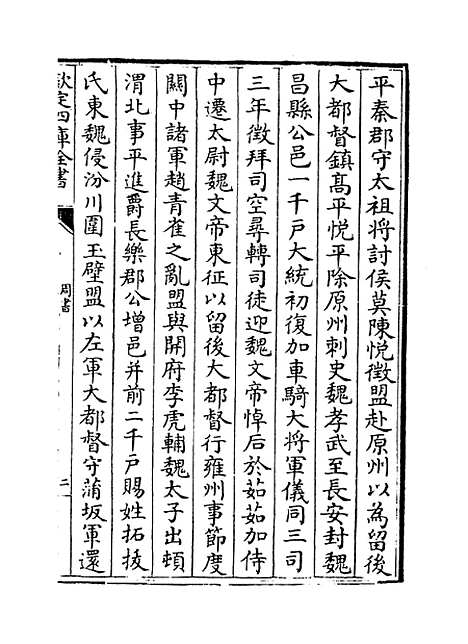 平秦郡守太祖将討侯莫陳悅徴盟赴原州以為留後
大都督鎮髙平悅平除原州刺史魏孝武至長安封魏
昌縣公邑一千戶大統初復加車騎大將軍儀同三司
三年徴拜司空尋轉司徒迎魏文帝悼后於茹茹加侍
中遷太尉魏文帝東征以留後大都督行雍州事節度
闗中諸軍趙青雀之亂盟與開府李虎輔魏太子出頓
渭北事平進爵長樂郡公增邑并前二千戶賜姓拓拔
氏東魏侵汾川圍玉壁盟以左軍大都督守蒲坂軍還
欽定四庫全書
周書
二